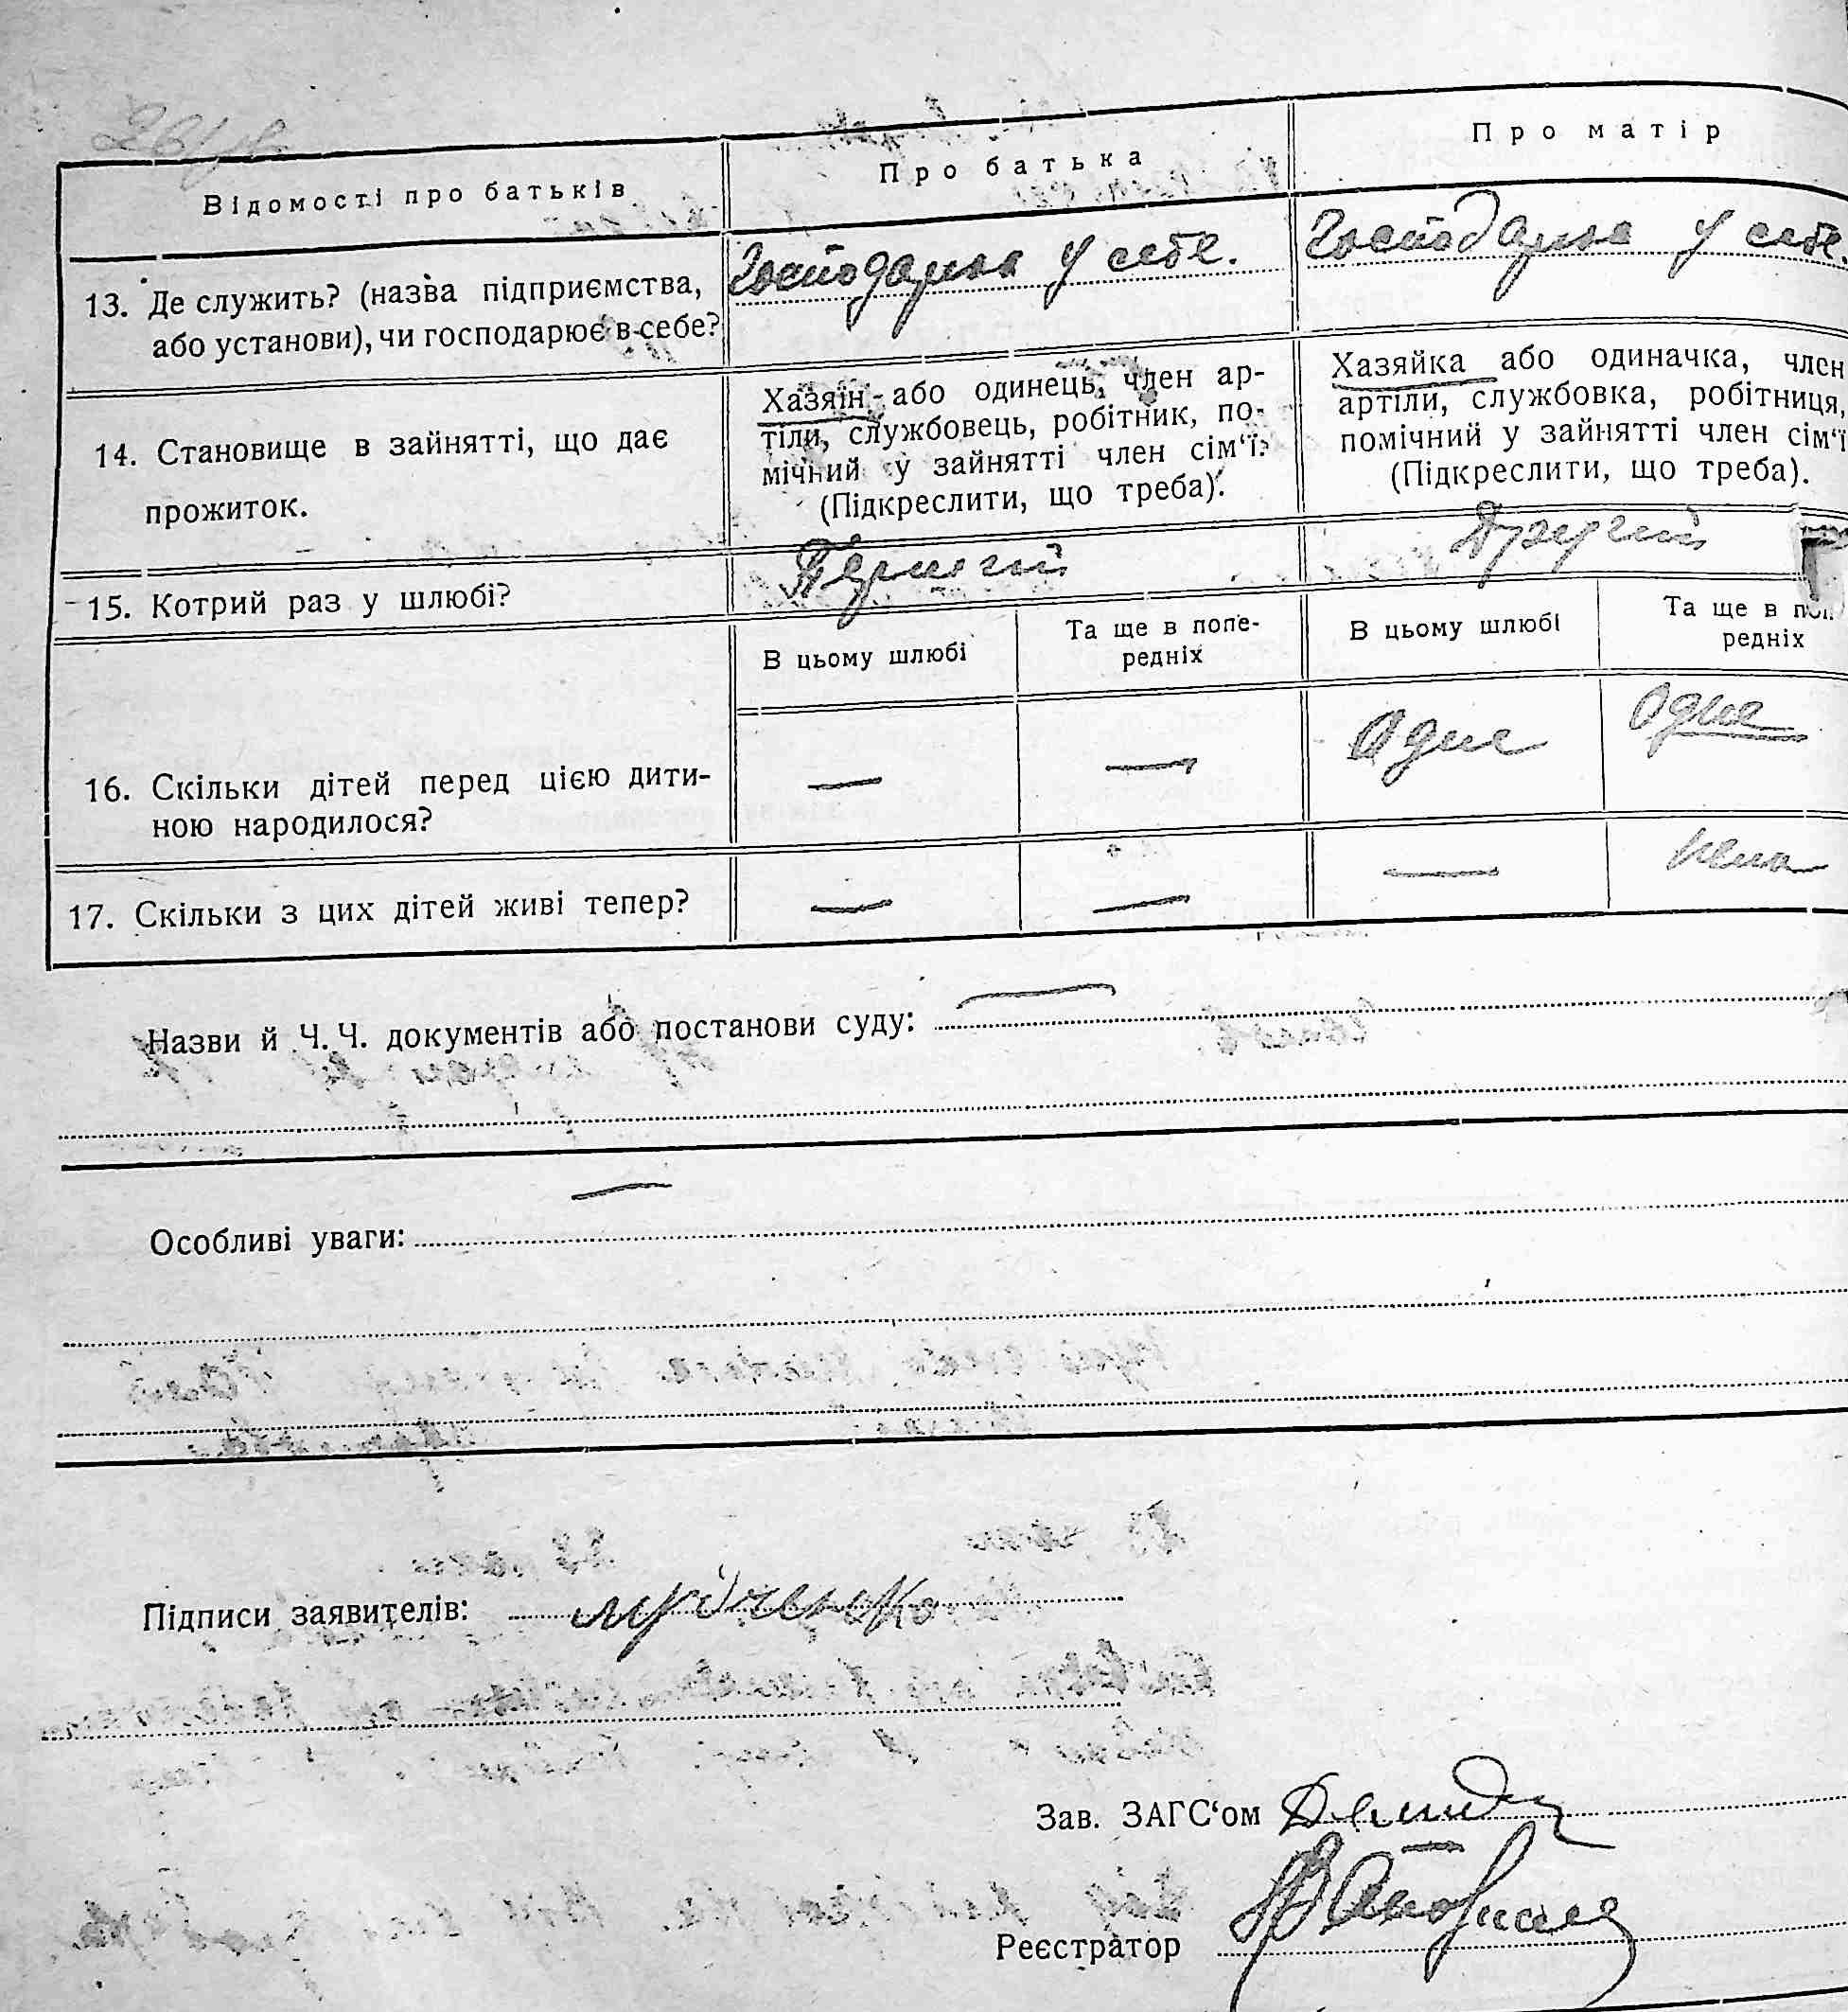 Відомості про батьків
Про батька
Про матір
13. Де служить? (назва підприємства,
або установи), чи господарює в себе?
у себе.
у себе.
14. Становище в зайнятті, що дає
прожиток.
Хазяїн або одинець, член ар-
тіли, службовець, робітник, по-
мічний у зайнятті член сім‘ї.
(Підкреслити, що треба).
Хазяйка або одиначка, член
артіли, службовка, робітниця,
помічний у зайнятті член сім‘ї
(Підкреслити, що треба).
15. Котрий раз у шлюбі?
Перший
Другий
В цьому шлюбі
Та ще в попе-
редніх
В цьому шлюбі
Та ще в
редніх
16. Скільки дітей перед цією дити-
ною народилося?
—
—
Одне
Одне
17. Скільки з цих дітей живі тепер?
—
—
—
нема
Назви й Ч. Ч. документів або постанови суду: —
Особливі уваги: —
Підписи заявителів:
Зав. ЗАГС‘ом
Реєстратор